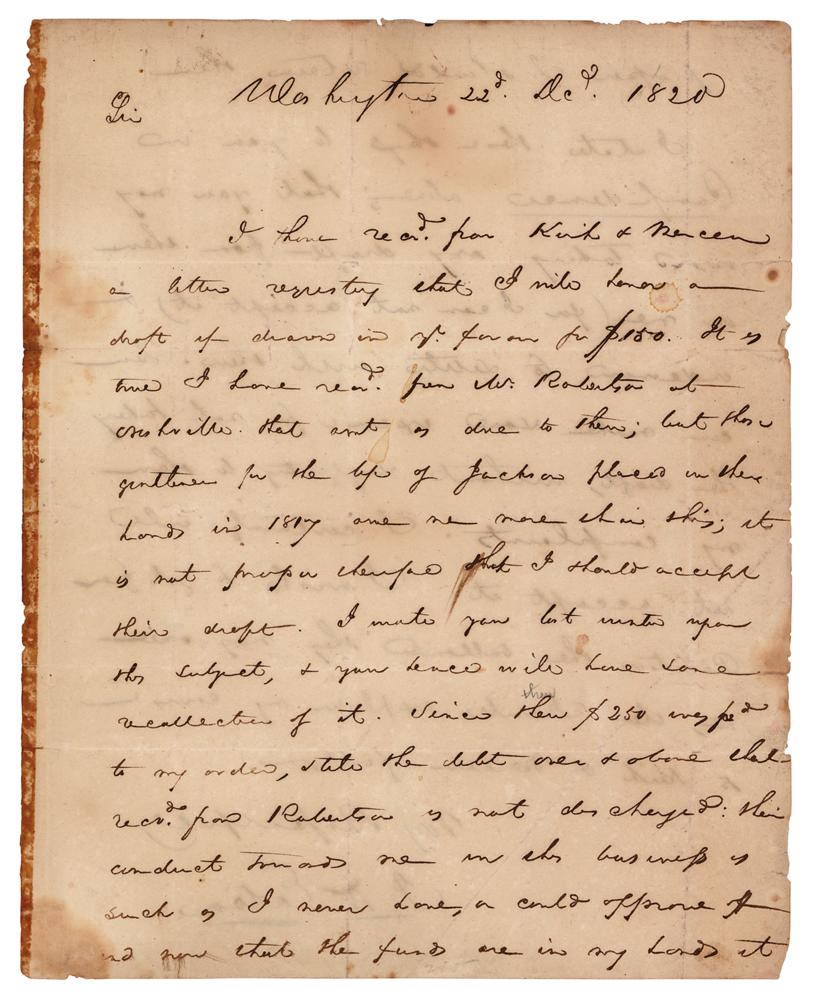 Washington 22d. Decd. 1820
Sir
I have recd. from Kirk & Mercein
a letter requesting that I will honor a
draft if drawn in yr. favour for $150. It is
true I have recd. from Mr. Robertson at
Nashville that amt as due to them; but those
gentlemen for the life of Jackson placed in their
hands in 1817 owe me more than this; it
is not proper therefore that I should accept
their draft. I wrote you last winter upon
this subject, & you hence will have some
recollection of it. Since then $250 was pd
to my order, still the debt over & above that
recvd. from Robertson is not discharged: their
conduct towards me in this business is
such as I never have, or could approve of
and now that the funds are in my hands it